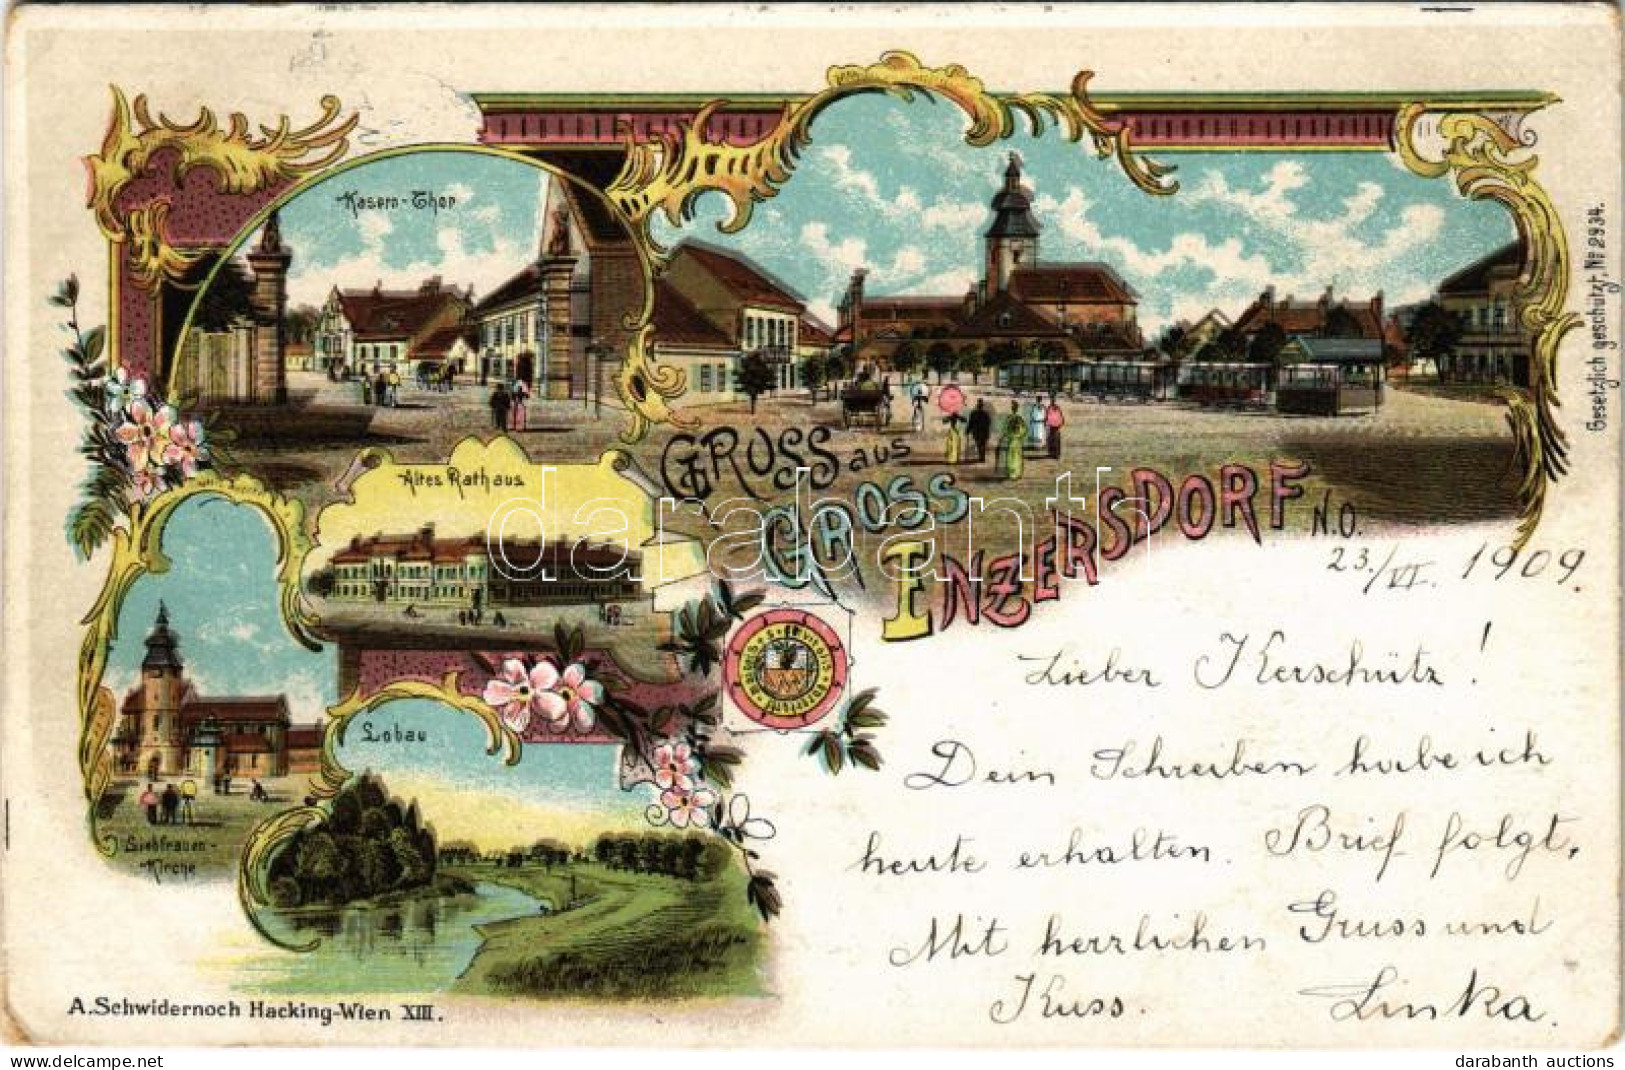 Kasern-Thor
Altes Rathaus
GRUSS aus
GROSS
INZERSDORF N.O.
Lobau
Liebfrauen-
Kirche
Gesetzlich geschützt, No 2934.
23./VI. 1909.
Lieber Kerschütz!
Dein Schreiben habe ich
heute erhalten. Brief folgt.
Mit herzlichen Gruss und
Kuss. Linka.
A. Schwidernoch Hacking-Wien XIII.
darabanth
darabanth auctions